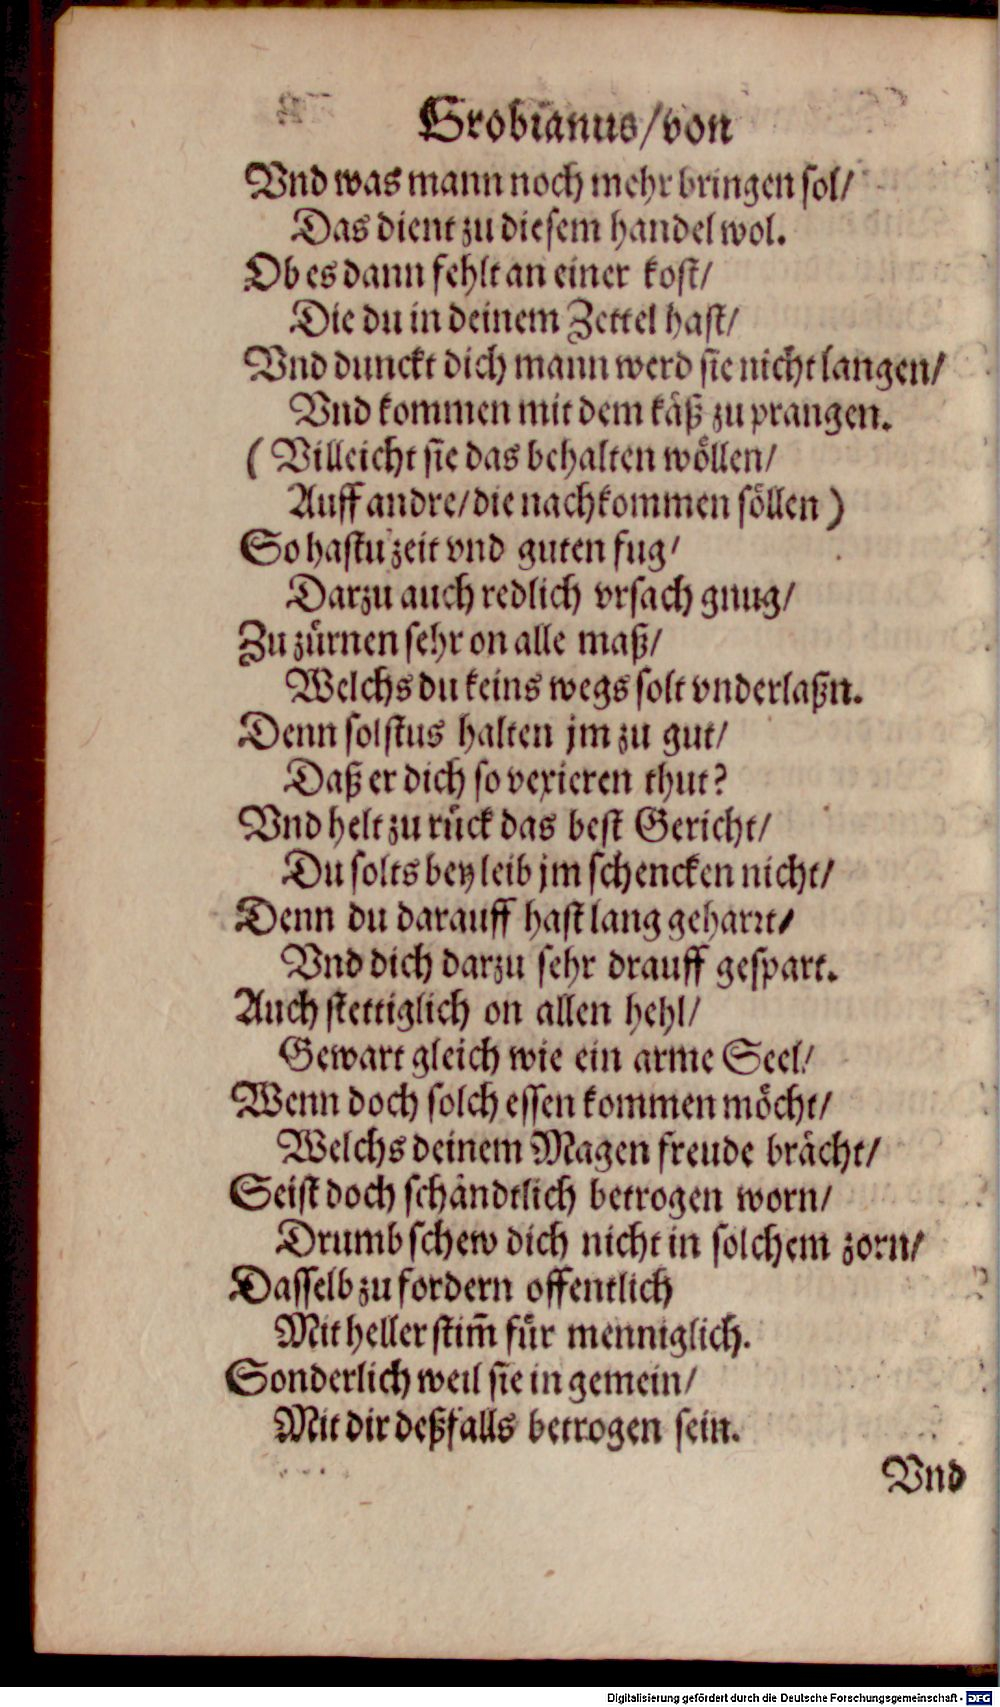 Grobianus/von
Vnd was mann noch mehr bringen sol/
Das dient zu diesem handel wol.
Ob es dann fehlt an einer kost/
Die du in deinem Zettel hast/
Vnd dunckt dich mann werd sie nicht langen/
Vnd kommen mit dem käß zu prangen.
(Villeicht sie das behalten wöllen/
Auff andre/die nachkommen söllen)
So hastu zeit vnd guten fug/
Darzu auch redlich vrsach gnug/
Zu zürnen sehr on alle maß/
Welchs du keins wegs solt vnderlaßn.
Denn solstus halten jm zu gut/
Daß er dich so vexieren thut?
Vnd helt zu rück das best Gericht/
Du solts bey leib jm schencken nicht/
Denn du darauff hast lang geharrt/
Vnd dich darzu sehr drauff gespart.
Auch stettiglich on allen hehl/
Gewart gleich wie ein arme Seel/
Wenn doch solch essen kommen möcht/
Welchs deinem Magen freude brächt/
Seist doch schändtlich betrogen worn/
Drumb schew dich nicht in solchem zorn/
Dasselb zu fordern offentlich
Mit heller stim̃ für menniglich.
Sonderlich weil sie in gemein/
Mit dir deßfalls betrogen sein.
Vnd
Digitalisierung gefördert durch die Deutsche Forschungsgemeinschaft - DFG